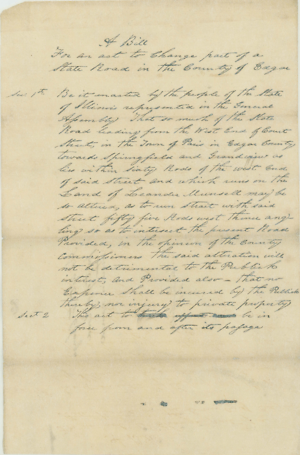 A Bill
For an act to Change part of a
State Road in the County of Edgar
Sec 1st Be it enacted by the people of the State
of Illinois represented in the General
Assembly That so much of the State
Road leading from the West End of Court
Street, in the Town of Paris in Edgar County
towards Springfield and Grandview as
lies within Sixty Rods of the West end
of said Street and which runs on the
Land of Leander Munsell may be
so altered, as to run Strait with said
Street fifty five Rods west thence ang
ling so as to intersect the present Road
Provided, in the opinion of the County
Commissioners the said alteration will
not be detrimental to the Publick
interest, and Provided also – That no
Expence Shall be incured by the Publick
thereby, nor injury to private property
Sect 2 This act to be in
force from and after its passage